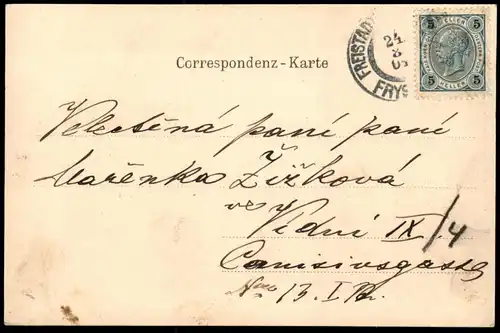 Correspondenz-Karte
FREISTADT
24
8
FRYS
5 5
HELLER
5 5
HELLER
Veletěná paní paní
Mařenka Žižková
ve
Vídni IX/4
Canisiusgasse
Nro 13. I